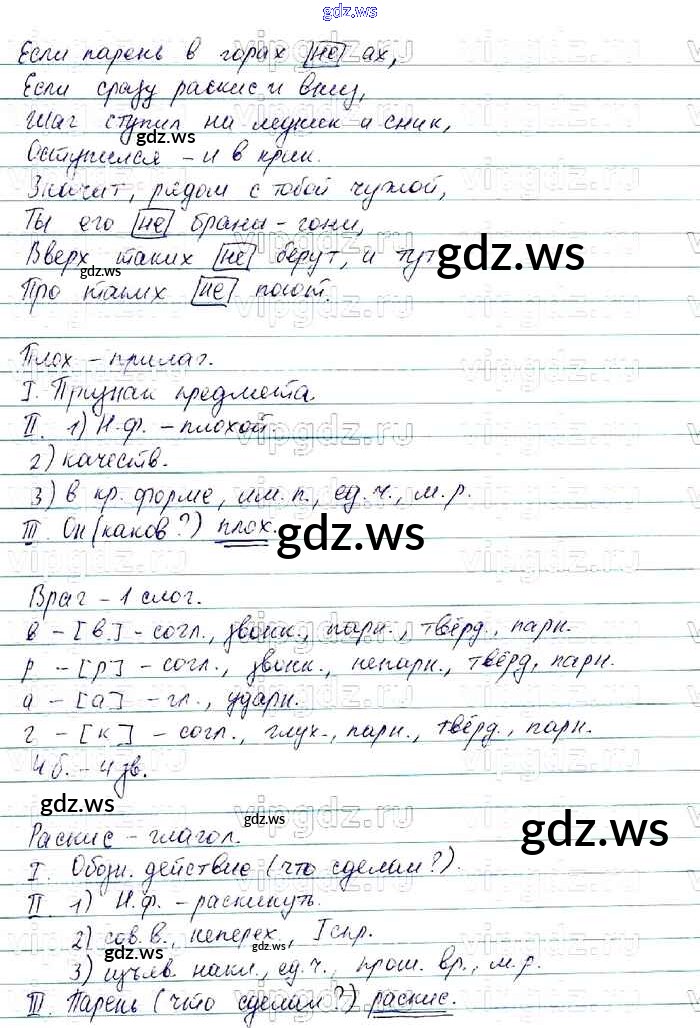 gdz.ws
Если парень в горах не ах,
Если сразу раскис и вниз,
Шаг ступил на ледник и сник,
gdz.ws
Оступился - и в крик.
Значит, рядом с тобой чужой,
Ты его не брани - гони,
Вверх таких не берут, и тут
gdz.ws
gdz.ws
Про таких не поют.
Плох - прилаг.
I. Признак предмета.
II. 1) Н.ф. - плохой.
2) качеств.
3) в кр. форме, им. п., ед. ч., м. р.
III. Он (каков?) плох.
gdz.ws
Враг - 1 слог.
в - [в] - согл., звонк., парн., твёрд., парн.
р - [р] - согл., звонк., непарн., твёрд, парн.
а - [а] - гл., ударн.
г - [к] - согл., глух., парн., твёрд., парн.
4 б. - 4 зв.
gdz.ws
gdz.ws
Раскис - глагол.
I. Обозн. действие (что сделал?).
II. 1) Н.ф. - раскинуть.
2) сов. в., неперех., I спр.
gdz.ws
3) изъяв. накл., ед. ч., прош. вр., м. р.
III. Парень (что сделал?) раскис.
gdz.ws